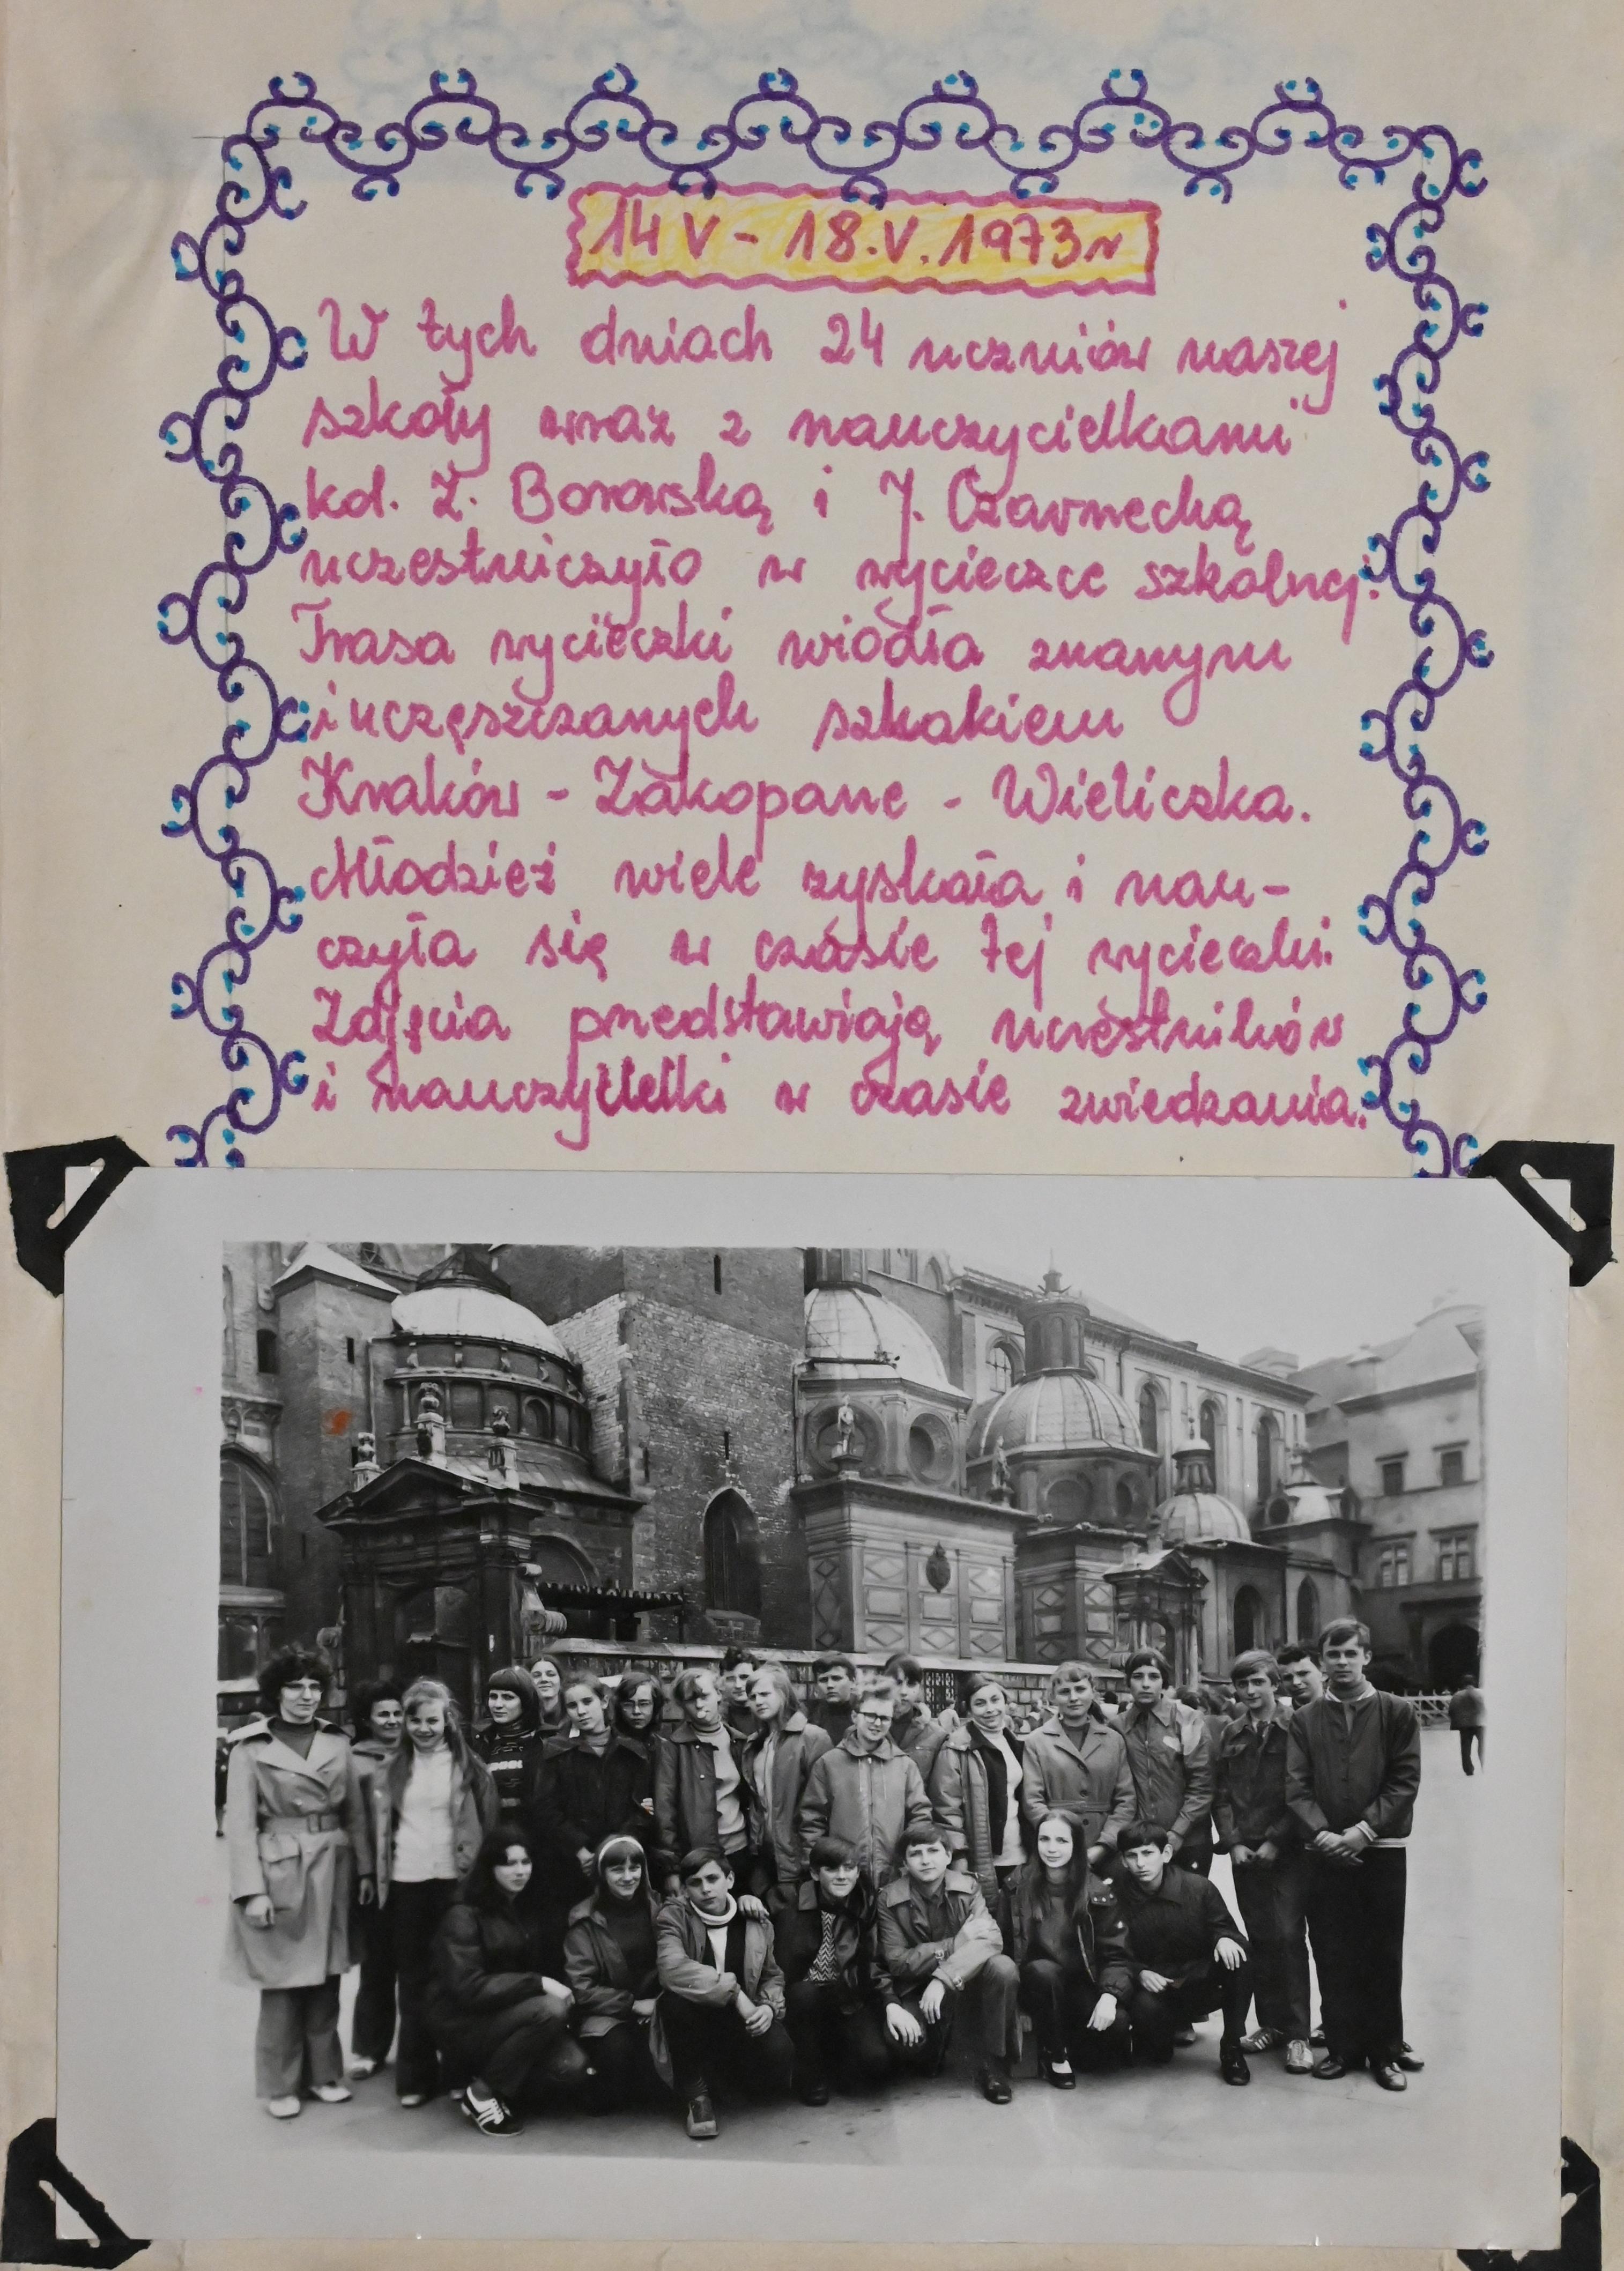 14 V - 18.V.1973r
W tych dniach 24 uczniów naszej
szkoły wraz z nauczycielkami
kol. Z. Borowską i J. Czarnecką
uczestniczyło w wycieczce szkolnej.
Trasa wycieczki wiodła znanym
i uczęszczanych szlakiem
Kraków - Zakopane - Wieliczka.
Młodzież wiele zyskała i nau-
czyła się w czasie tej wycieczki.
Zdjęcia przedstawiają uczestników
i nauczycielki w czasie zwiedzania.